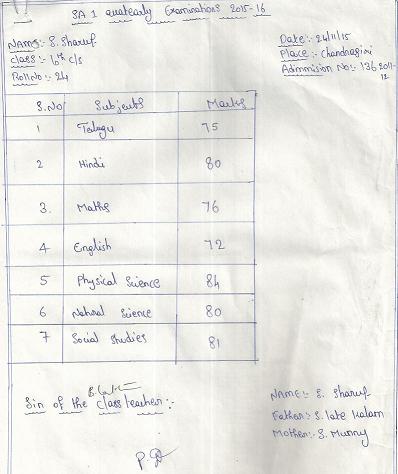 SA 1 quatearly Examinations 2015-16
Name:- S. Sharuf
Class:- 10th c/s
Roll No:- 24
Date:- 24/11/15
Place:- Chandragiri
Admmision No:- 136 2011-12
S.No Subjects Marks
1 Telugu 75
2 Hindi 80
3. Maths 76
4 English 72
5 Physical Science 84
6 Natural Science 80
7 Social studies 81
Sin of the class teacher:-
NAME:- S. Sharuf
Father:- S. late Kalam
Mother:- S. Munny